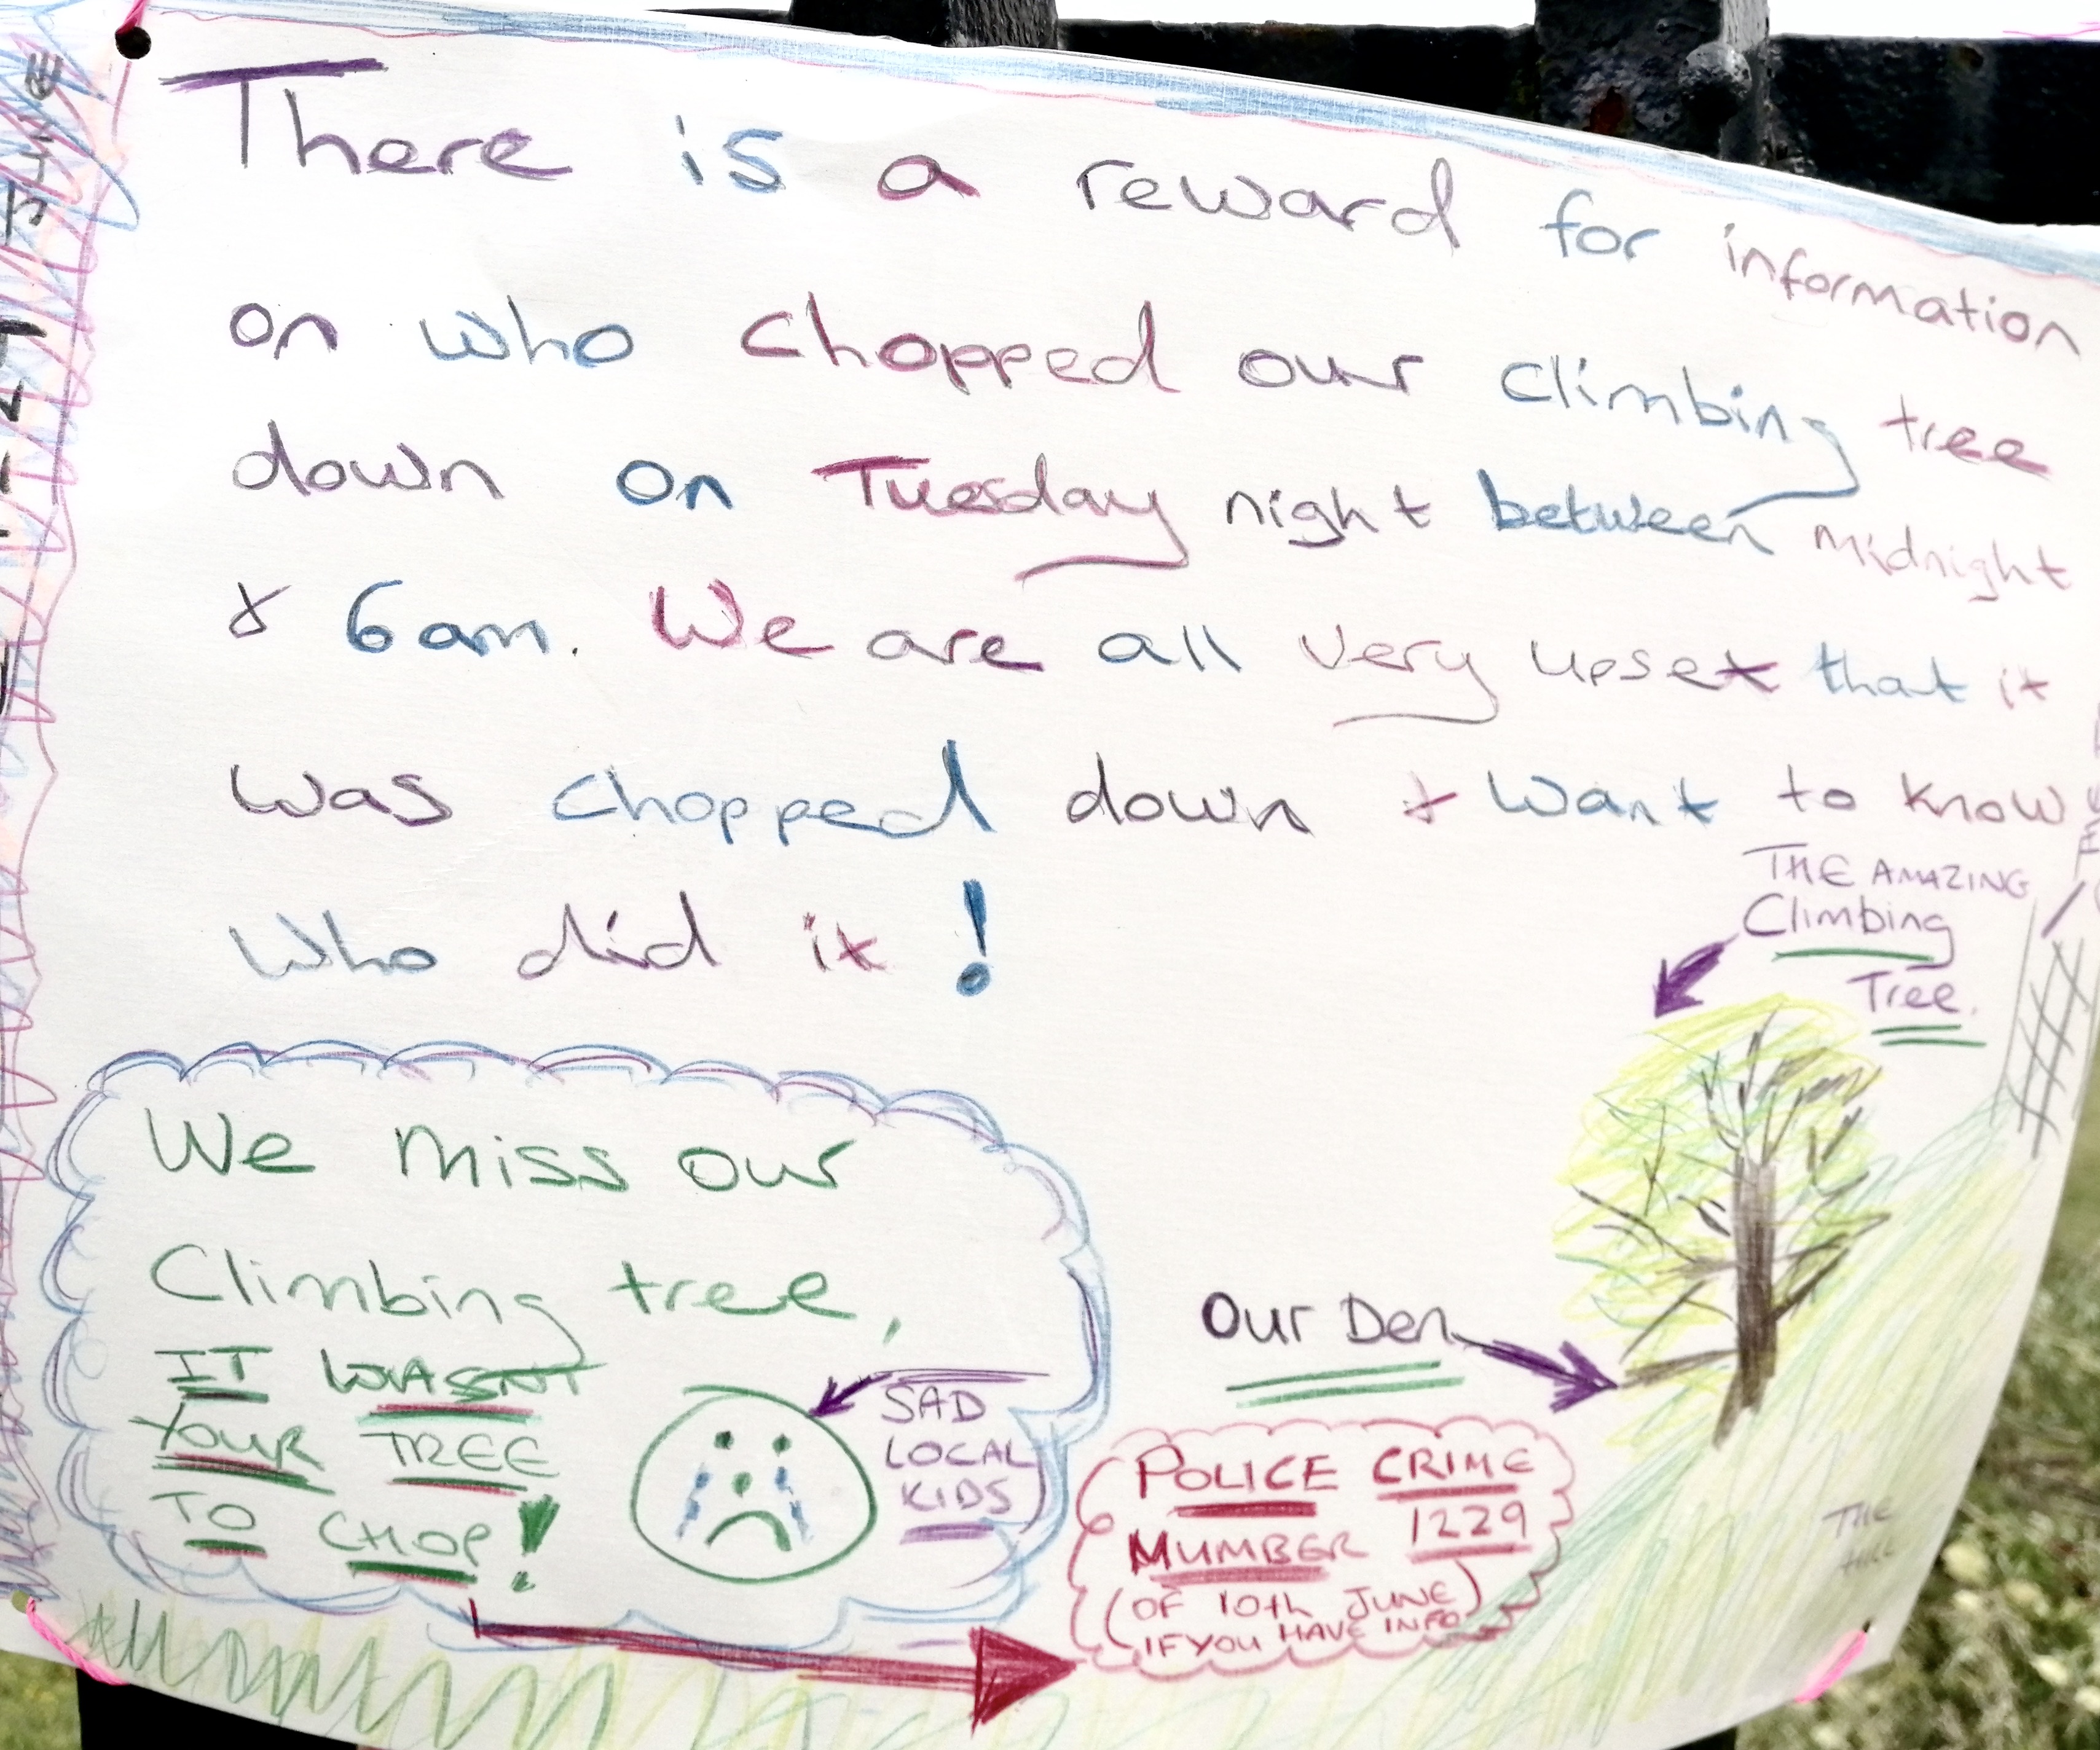 There is a reward for information
on who chopped our climbing tree
down on Tuesday night between midnight
& 6am. We are all very upset that it
was chopped down & want to know
who did it!
THE AMAZING
Climbing
Tree.
We miss our
Climbing tree,
IT WASNT
YOUR TREE
TO CHOP!
SAD
LOCAL
KIDS
Our Den
POLICE CRIME
MUMBER 1229
(OF 10th JUNE)
IF YOU HAVE INFO
THE